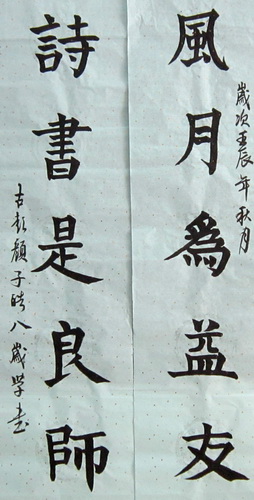 歲次壬辰年秋月
風月爲益友
詩書是良師
古彭顏子皓八歲學書